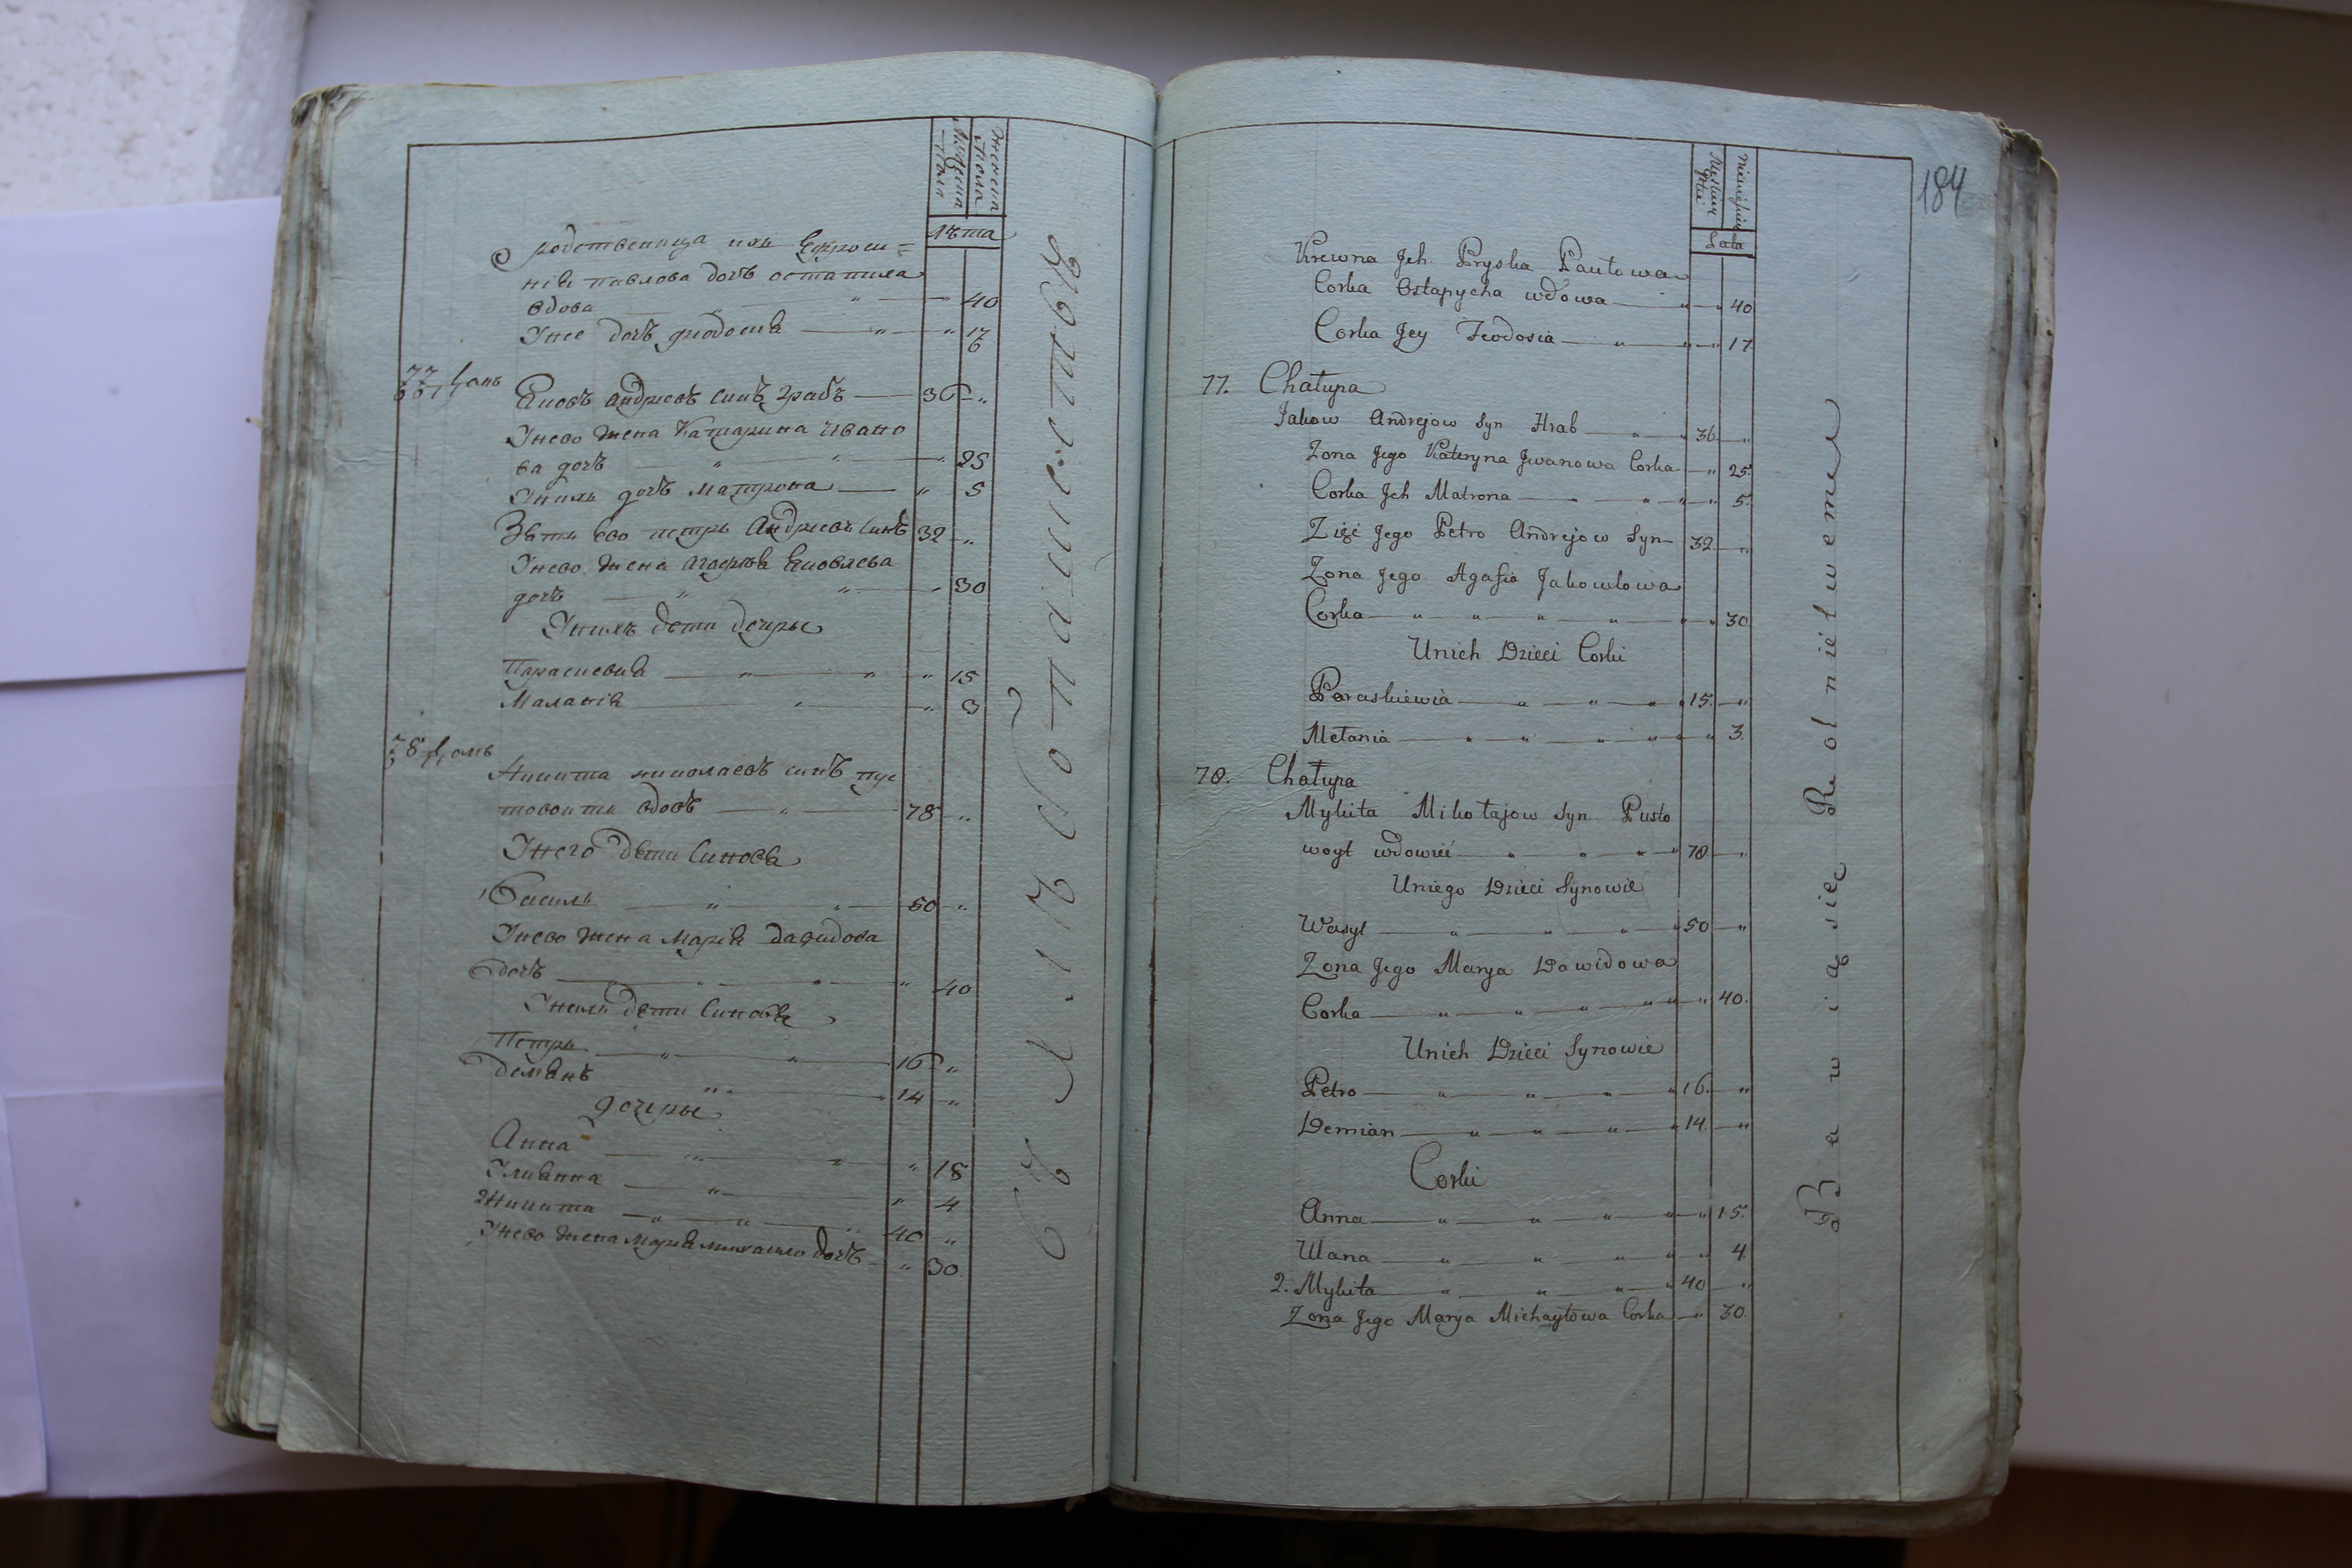 мужеска пола
женска пола
лѣта
родственица ихъ Ефроси=
нія павлова дочь остапиха
вдова 40
Унее дочь феодосія " " 17
77 домъ
Яковъ андреевъ синъ грабъ 36 "
Унево жена Катарина ивано
ва дочъ " " 25
Унихъ дочъ Матрона " 5
Зять ево петръ андреевъ синъ 32 "
Унево жена агафія Яковлева
дочъ " " 30
Унихъ дети дочеры
Параскевія " " " 15
Маланія " " 3
78 домъ
Никита николаевъ синъ пус
товоитъ вдовъ " 78 "
Унего дети синовя
1 Василь " " 50 "
Унево жена Марія давидова
дочъ " " " " 40
Унихъ дети синовя
Петръ " " 16 "
демянъ " 14 "
дочеры
Анна " " " 18
Улиянна " " 4
2 Никита " " 40 "
Унево жена Марія михаило дочъ " 30
Хлебопашествомъ
184
Męskiey płci
Lata
Krewna Jch Pryska Pawłowa
Corka Ostapycha wdowa " " 40
Corka Jey Feodosia " " " 17.
77. Chałupa
Jakow Andrejow Syn Hrab " " 36. "
Zona Jego Kateryna Jwanowa Corka " 25.
Corka Jch Matrona " " " " 5.
Zięć Jego Petro Andrejow Syn 32. "
Zona Jego Agafia Jakowlowa
Corka " " " " " " 30.
Unich Dzieci Corki
Paraskiewia " " " " 15. "
Mełania " " " " " " 3.
78. Chałupa
Mykita Mikołajow Syn Pusto
woyt wdowiec " " " " 78 "
Uniego Dzieci Synowie
Wasyl " " " " 50 "
Zona Jego Marya Dawidowa
Corka " " " " " " 40.
Unich Dzieci Synowie
Petro " " " " 16. "
Demian " " " " 14. "
Corki
Anna " " " " " 15.
Ulana " " " " " 4.
2. Mykita " " " " 40 "
Zona Jego Marya Michayłowa Corka " 30.
Bawią się Rolnictweme